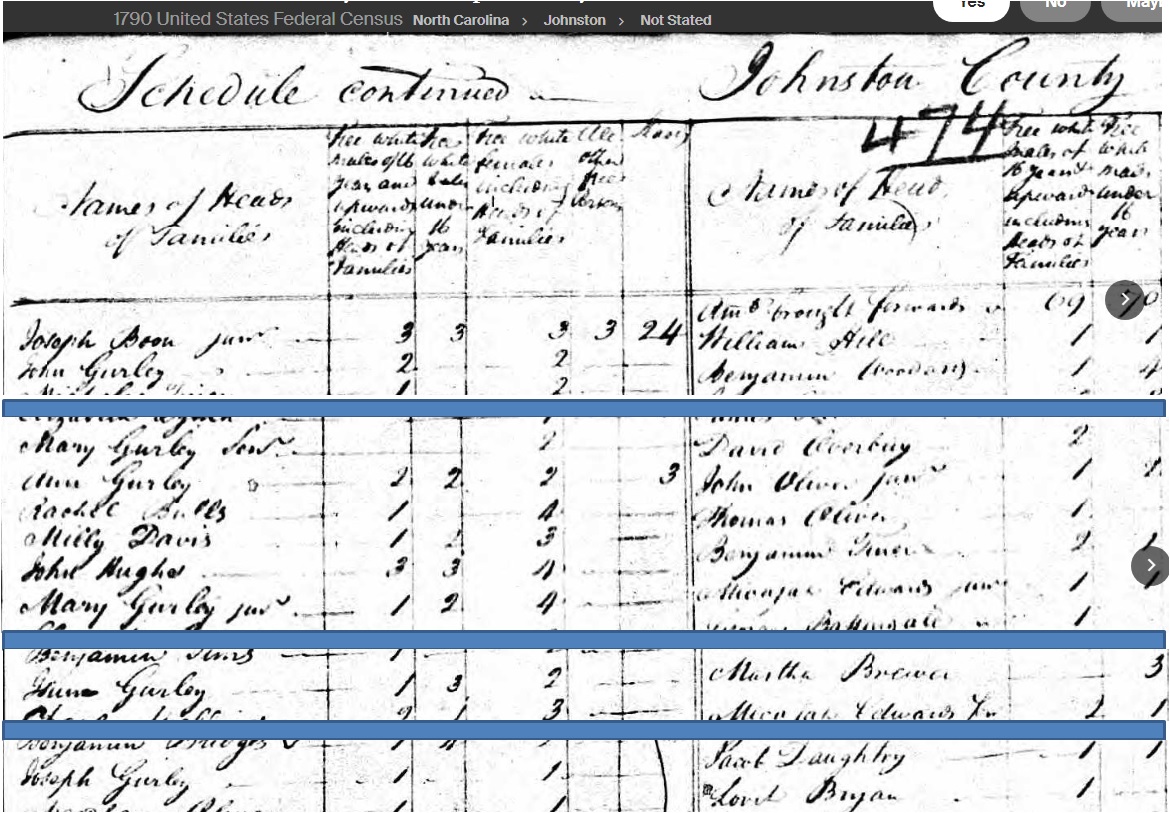 1790 United States Federal Census North Carolina > Johnston > Not Stated
Yes No
Schedule continued Johnston County
474
Names of Heads of Families
Free white males of 16 years and upwards including Heads of Families
Free white males under 16 years
Free white females including Heads of Families
All other free persons
Slaves
Names of Head of Families
Free white males of 16 years & upwards including Heads of Families
Free white males under 16 years
Amt brought forwards 69
Joseph Boon junr 3 3 3 3 24
William Hill 1 1
John Gurley 2 2
Benjamin Woodard 1 4
1 2
Mary Gurley Senr 2
David Overbuy 2
Ann Gurley 2 2 2 3
John Oliver junr 1
Rachel 1 4
Thomas Oliver 1
Milly Davis 1 3
Benjamin 2 1
John Hughs 3 3 4
Micajah Edwards junr 1 1
Mary Gurley junr 1 2 4
1
Benjamin Sims 1
Martha Brewer 3
Gurley 1 3 2
Micajah Edwards Snr 2 1
2 1 3
Benjamin Bridges 1 4
Jacob Daughtry 1 1
Joseph Gurley 1 1
Lovit Bryan 1
1 1